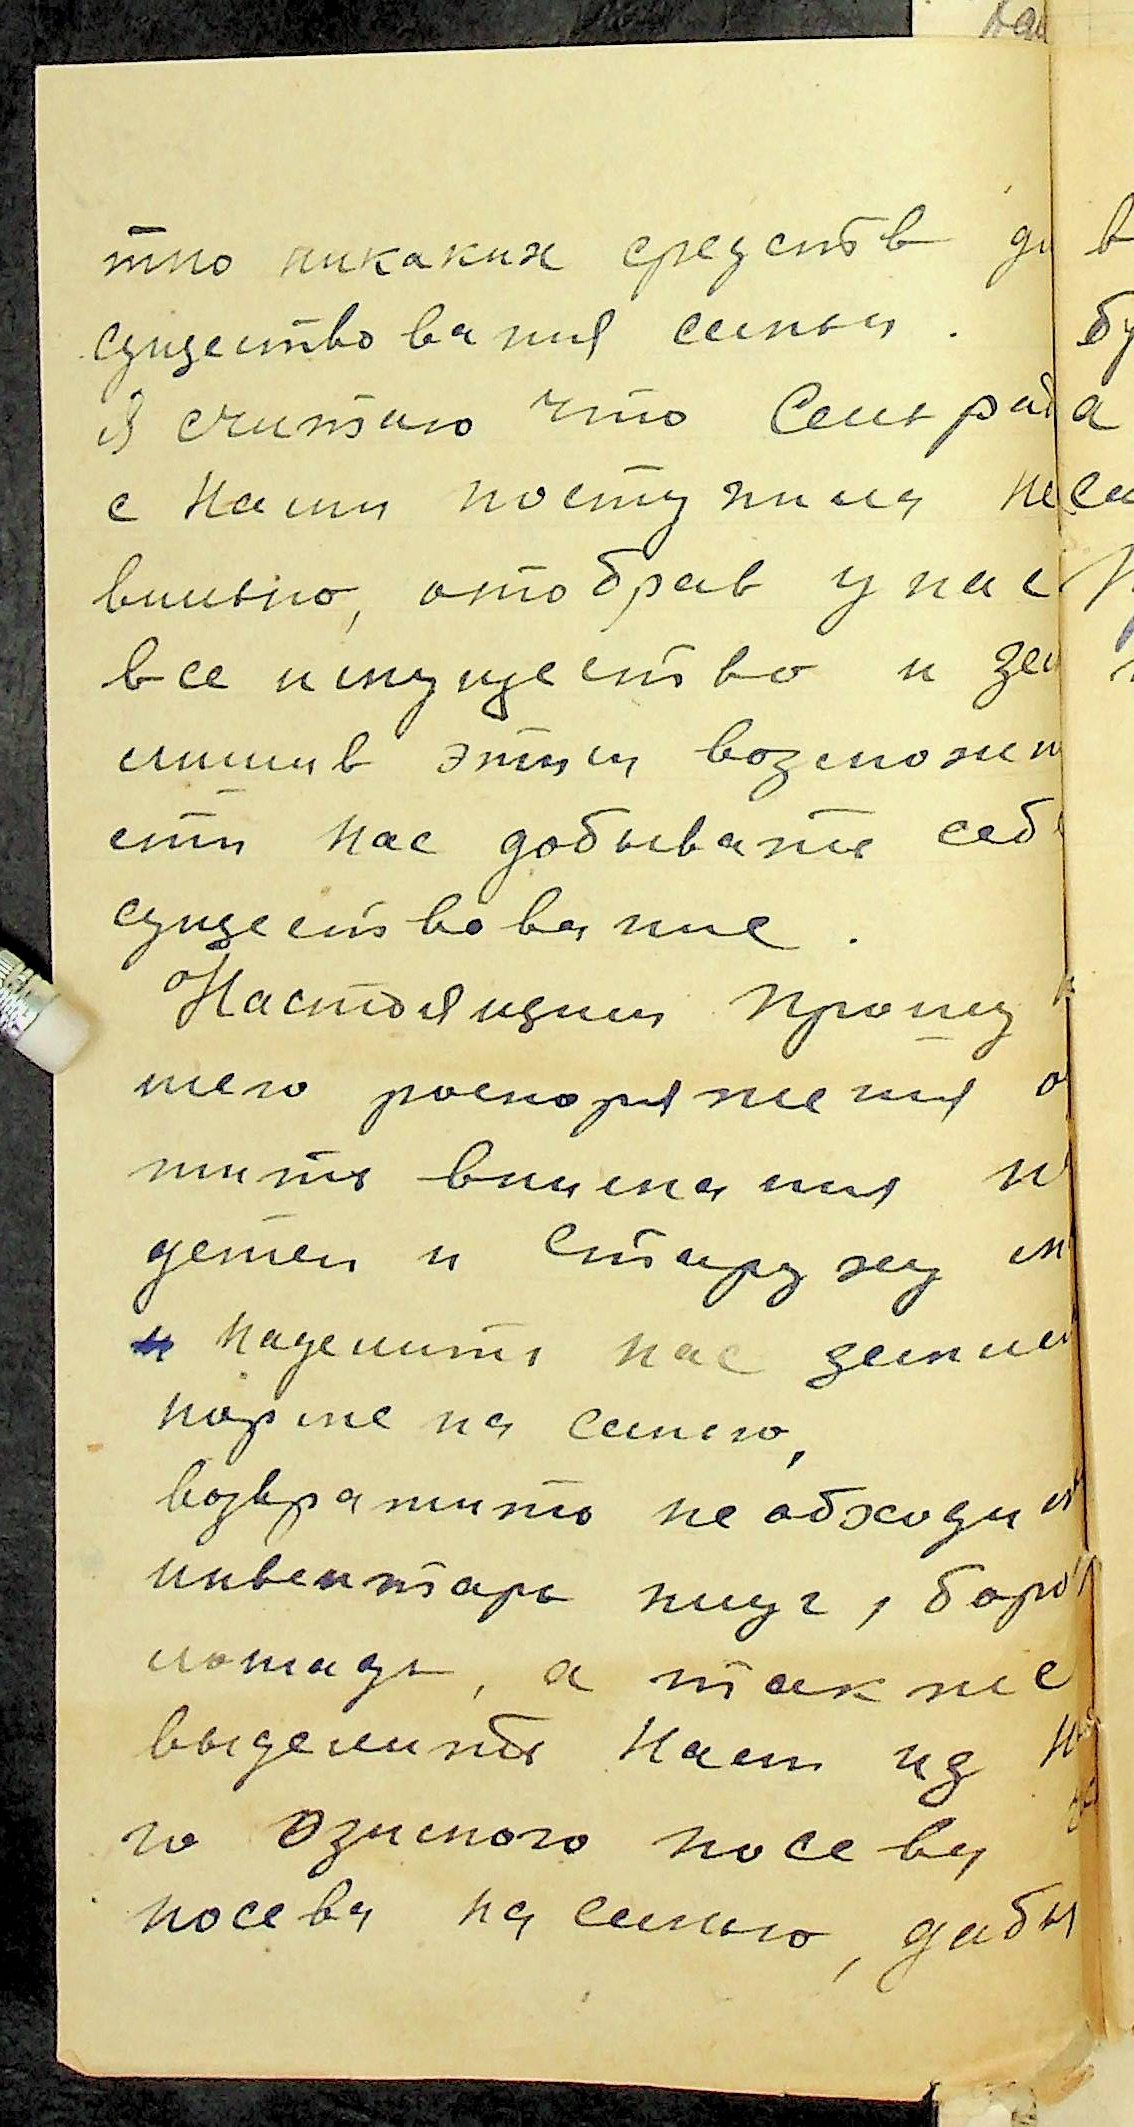 тно никаких средств дл
существования семьи.
Я считаю что Сельрад
с Нами поступила не
вильно, отобрав у нас
все имущество и зем
лишив этим возможно
сти нас добывать себе
существование.
Настоящим прошу
шего роспоряжения о
тить внимания
детей и старуху м
и наделить нас землей
норме на семью,
возвратить необходим
инвентарь плуг, боро
лошадь, а также
выделить Нам из
го озимого посева
посева на семью, дабы